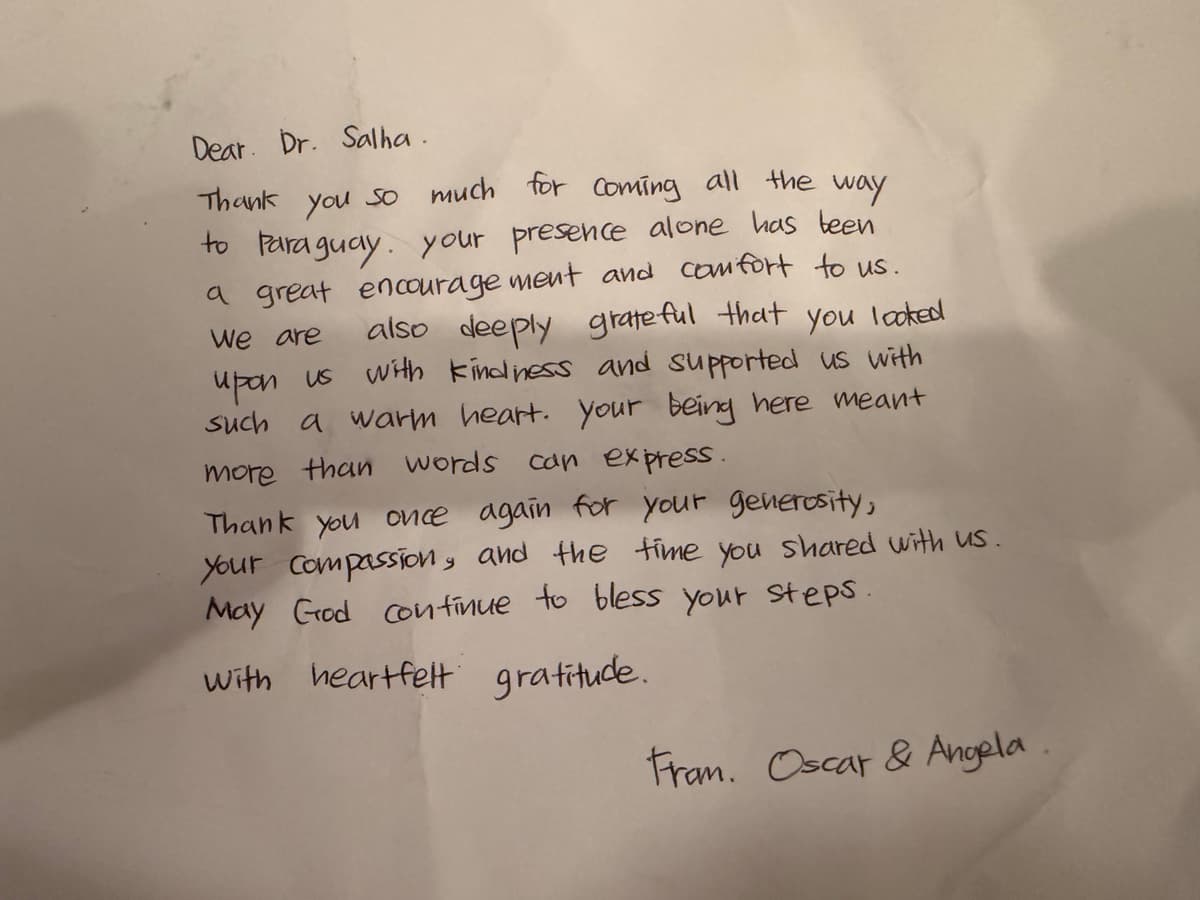 Dear. Dr. Salha.
Thank you so much for coming all the way
to Paraguay. your presence alone has been
a great encouragement and comfort to us.
We are also deeply grateful that you looked
upon us with kindness and supported us with
such a warm heart. your being here meant
more than words can express.
Thank you once again for your generosity,
your compassion, and the time you shared with us.
May God continue to bless your steps.
with heartfelt gratitude.
From. Oscar & Angela.